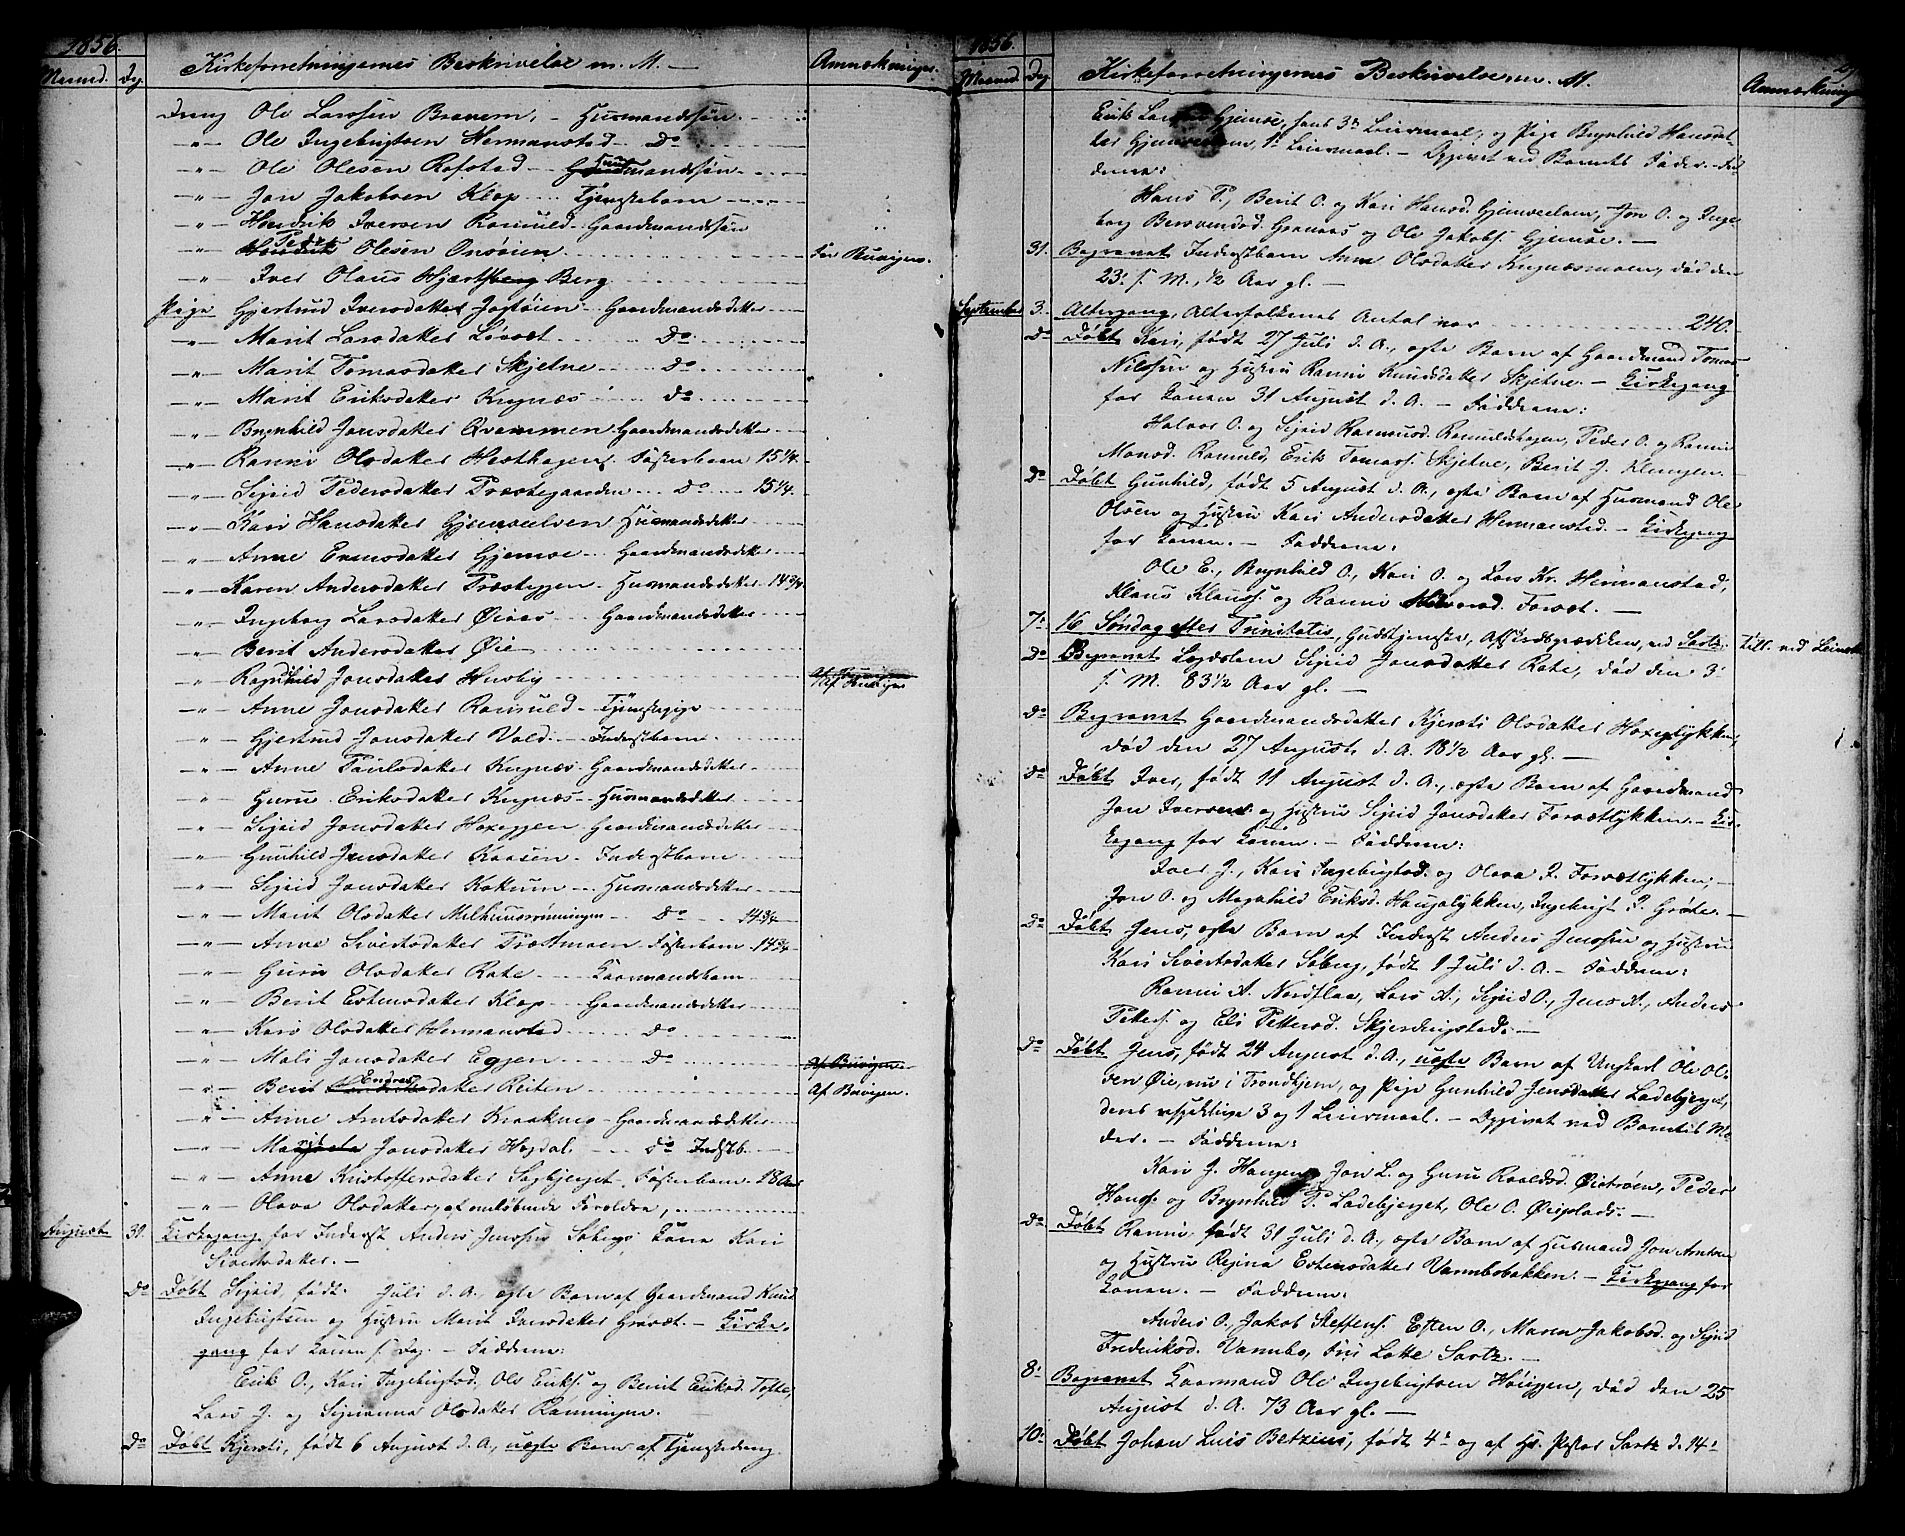 1856.
Maaned. Dg. Kirkeforretningernes Beskrivelse m. M. — Anmærkninger.
Dreng Ole Larssen Bravem, — Husmandssøn
—"— Ole Ingebrigtsen Hermanstad — Do
—"— Ole Olesen Rofstad — Huusmandssøn
—"— Jon Jakobsen Klop — Tjenestebarn
—"— Hendrik Iversen Ramuld — Gaardmandssøn
—"— Peder Olesen Onsøien før Buvigen.
—"— Iver Olaus Hjartberg Berg
Pige Gjertrud Iversdatter Jagtøien — Gaardmandsdatter
—"— Marit Larsdatter Løvset — Do
—"— Marit Tomasdatter Skjetne — Do
—"— Marit Eriksdatter Krgnæs — Do
—"— Brynhild Jonsdatter Qvammen Gaardmandsdatter
—"— Ranni Olsdatter Hesthagen, Fosterbarn 15 1/4
—"— Sigrid Pedersdatter Præstegaarden — Do — 15 1/4.
—"— Kari Hansdatter Gjemvelven Husmandsdatter
—"— Anne Evensdatter Gjemse — Gaardmandsdatter
—"— Karen Andersdatter Træteggen — Husmandsdatter — 14 3/4
—"— Ingeborg Larsdatter Øiaas — Gaardmandsdatter
—"— Berit Andersdatter Øie
—"— Ragnhild Jonsdatter Husby Af Buvigen
—"— Anne Jonsdatter Ramuld — Tjenestepige
—"— Gjertrud Jonsdatter Vold — Inderstbarn
—"— Anne Paulsdatter Krgnæs — Gaardmandsdatter
—"— Guru Eriksdatter Krgnæs — Husmandsdatter
—"— Sigrid Jonsdatter Hoxeggen — Gaardmandsdatter
—"— Gunhild Jensdatter Kaasen — Inderstbarn
—"— Sigrid Jonsdatter Kokum — Husmandsdatter
—"— Marit Olsdatter Melhuusrønningen — Do — 14 3/4
—"— Anne Sivertsdatter Træthmoen — Fosterbarn — 14 3/4
—"— Guru Olsdatter Rate — Kaarmandsbarn
—"— Berit Estensdatter Klop — Gaardmandsdatter
—"— Kari Olsdatter Hermanstad — do
—"— Mali Jonsdatter Eggen — do Af Buvigen
—"— Berit Endresdatter Reiten Af Buvigen.
—"— Anne Arntsdatter Kraaknes — Gaardmandsdatter
—"— Marit Jonsdatter Hojdal — do Indstb.
—"— Anne Kristoffersdatter Sagbjerget, Fosterbarn — 18 Aar
—"— Olava Olsdatter, af omløbende Forældre,
August 31. Kirkegang for Inderst Anders Jenssen Sobergs Kone Kari
Sivertsdatter. —
Do Døbt Sigrid, født Juli d. A., ægte Barn af Gaardmand Knud
Ingebrigtsen og Hustru Marit Jensdatter Grøvset. — Kirke-
gang for Konen s. Dag. — Fadderne:
Erik O., Kari Ingebrigtsd. Ole Eriks. og Berit Eriksd. Tofte,
Lars J. og Sigrianna Olsdatter Ranningen.
Do Døbt Kjersti, født 6 August d. A., uægte Barn af Tjenestedreng
1856.
Maaned Dg. Kirkeforretningernes Beskrivelse m. M. Anmærkninger
Erik Larsen Gjemse, hans 3die Leiermaal, og Pige Brynhild Hansdat-
ter Gjemvedlem, 1ste Leiermaal. — Opgivet ved Barnets Fader. Fad-
derne:
Hans P., Berit O. og Kari Hansd. Gjemvedlem, Jon O. og Inge-
borg Bersvendsd. Granaas og Ole Jakobs. Gjemse. —
31. Begravet Inderstbarn Anne Olsdatter Krgnæsmoen, død den
23. s. M., 1/2 Aar gl. —
September 3. Altergang, Alterfolkenes Antal var 240.
Do Døbt Kari, født 27 Juli d. A., ægte Barn af Gaardmand Tomas
Nilssen og Hustru Ranni Knudsdatter Skjetne. — Kirkegang
for Konen 31 August d. A. — Fadderne:
Halvor O. og Sigrid Rasmusd. Ramuldshagen, Peder O. og Ranni
Monsd. Ramuld, Erik Tomass. Skjetne, Berit J. Klengen.
Do Døbt Gunhild, født 5 August d. A., ægte Barn af Husmand Ole
Olsen og Hustru Kari Andersdatter Hermanstad. — Kirkegang
for Konen. — Fadderne:
Ole E., Brynhild O., Kari O. og Lars Kr. Hermanstad,
Klaus Klauss. og Ranni Halvorsd. Forset. —
7. 16 Søndag efter Trinitatis, Gudstjeneste, Afskedsprædiken, ved Sartz. Till. ved Leinstr.
Do Begravet Lægdslem Sigrid Jonsdatter Rate, død den 3.
s. M. 83 1/2 Aar gl. —
Do Begravet Gaardmandsdatter Kjersti Olsdatter Hoxeglykken,
død den 27 August d. A. 18 1/2 Aar gl. —
Do Døbt Iver, født 11 August d. A., ægte Barn af Gaardmand
Jon Iversen og Hustru Sigrid Jonsdatter Forsetlykken. — Kir-
kegang for Konen. — Fadderne:
Iver J., Kari Ingebrigtsd. og Olava I. Forsætlykken, —
Jon O. og Magnhild Eriksd. Haugalykken, Ingebrigt P. Grøte. —
Do Døbt Jens, ægte Barn af Inderst Anders Jenssen og Hustru
Kari Sivertsdatter Søberg, født 1 Juli d. A. — Fadderne:
Ranni A. Nordflaa, Lars A., Sigrid O., Jens A., Anders
Petters. og Eli Pettersd. Skjerdingstad. —
Do Døbt Jens, født 24 August d. A., uægte Barn af Ungkarl Ole Ol-
sen Øie, nu i Trondhjem, og Pige Gunhild Jensdatter Ladebjerget,
deres respektive 3 og 1 Leiermaal. — Opgivet ved Barnets Mo-
der. — Fadderne:
Kari J. Haugen, Jon L. og Guru Roaldsd. Øietrøen, Peder
Hanss. og Brynhild P. Ladebjerget, Ole O. Øieplads. —
Do Døbt Ranni, født 31 Juli d. A., ægte Barn af Husmand Jon Arntsen
og Hustru Regina Estensdatter Vambobakken. — Kirkegang for
Konen. — Fadderne:
Anders O., Jakob Steffens. Esten O., Maren Jakobsd. og Sigrid
Frederiksd. Vambo, Frk Lotte Sartz. —
8. Begravet Kaarmand Ole Ingebrigtsen Høieggen, død den 25
August d. A. 73 Aar gl. —
10. Døbt Johan Luis Betzius, født 4. og af Hr. Pastor Sartz d. 14.